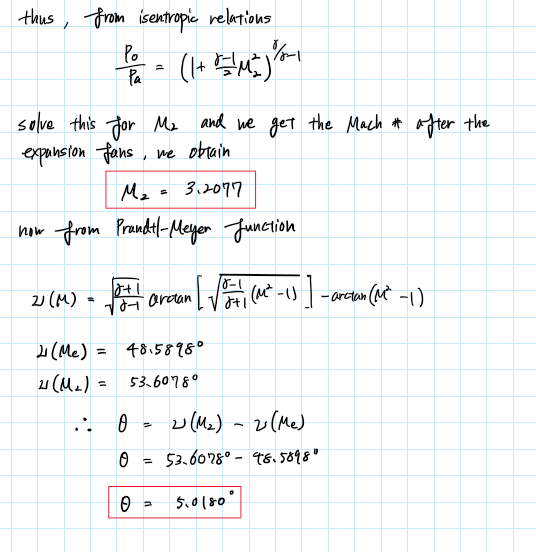 thus, from isentropic relations
P₀/Pa = (1 + (γ-1)/2 M₂²)^(γ/γ-1)
solve this for M₂ and we get the Mach # after the
expansion fans, we obtain
M₂ = 3.2077
now from Prandtl-Meyer function
ν(M) = √((γ+1)/(γ-1)) arctan [√((γ-1)/(γ+1) (M² -1))] - arctan(M² -1)
ν(Me) = 48.5898°
ν(M₂) = 53.6078°
∴ θ = ν(M₂) - ν(Me)
θ = 53.6078° - 48.5898°
θ = 5.0180°